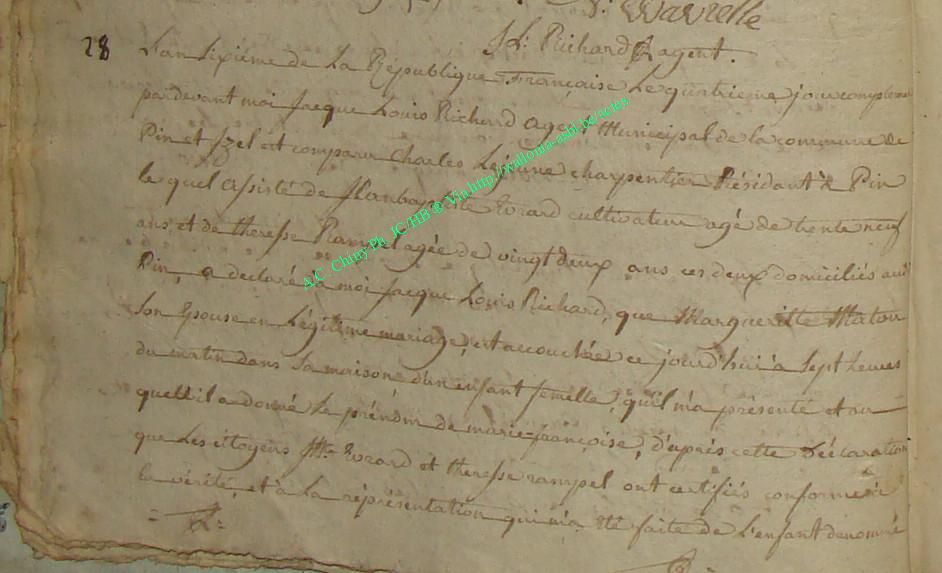 Wavrelle
J. L. Richard agent.
28 L'an sixiéme de La République Française Le quatrieme jour complem
pardevant moi Jacque Louis Richard agent Municipal de la commune de
Pin et Izel est comparu Charles Lejeune charpentier Résidant à Pin
le quel assisté de Evrard cultivateur agé de trente neuf
ans et de theresse Rampel agée de vingt deux ans ces deux domiciliés audit
Pin, a declaré à moi Jacque Louis Richard, que Marguerite Maton
Son Epouse en Légitime mariage, est accouchée ce jourd'hui à Sept heures
du matin dans Sa maisone d'un enfant femelle, qu'il m'a présenté et au
quell il a donné Le prénom de marie=françoise, d'après cette Déclaration
que Les citoyens Evrard et theresse rampel ont certifiés conforme à
la vérité, et à La représentation qui m'a été faite de L'enfant denommé
A.C. Chiny Ph JC/HB ® Via http://wallonia-asbl.be/actes